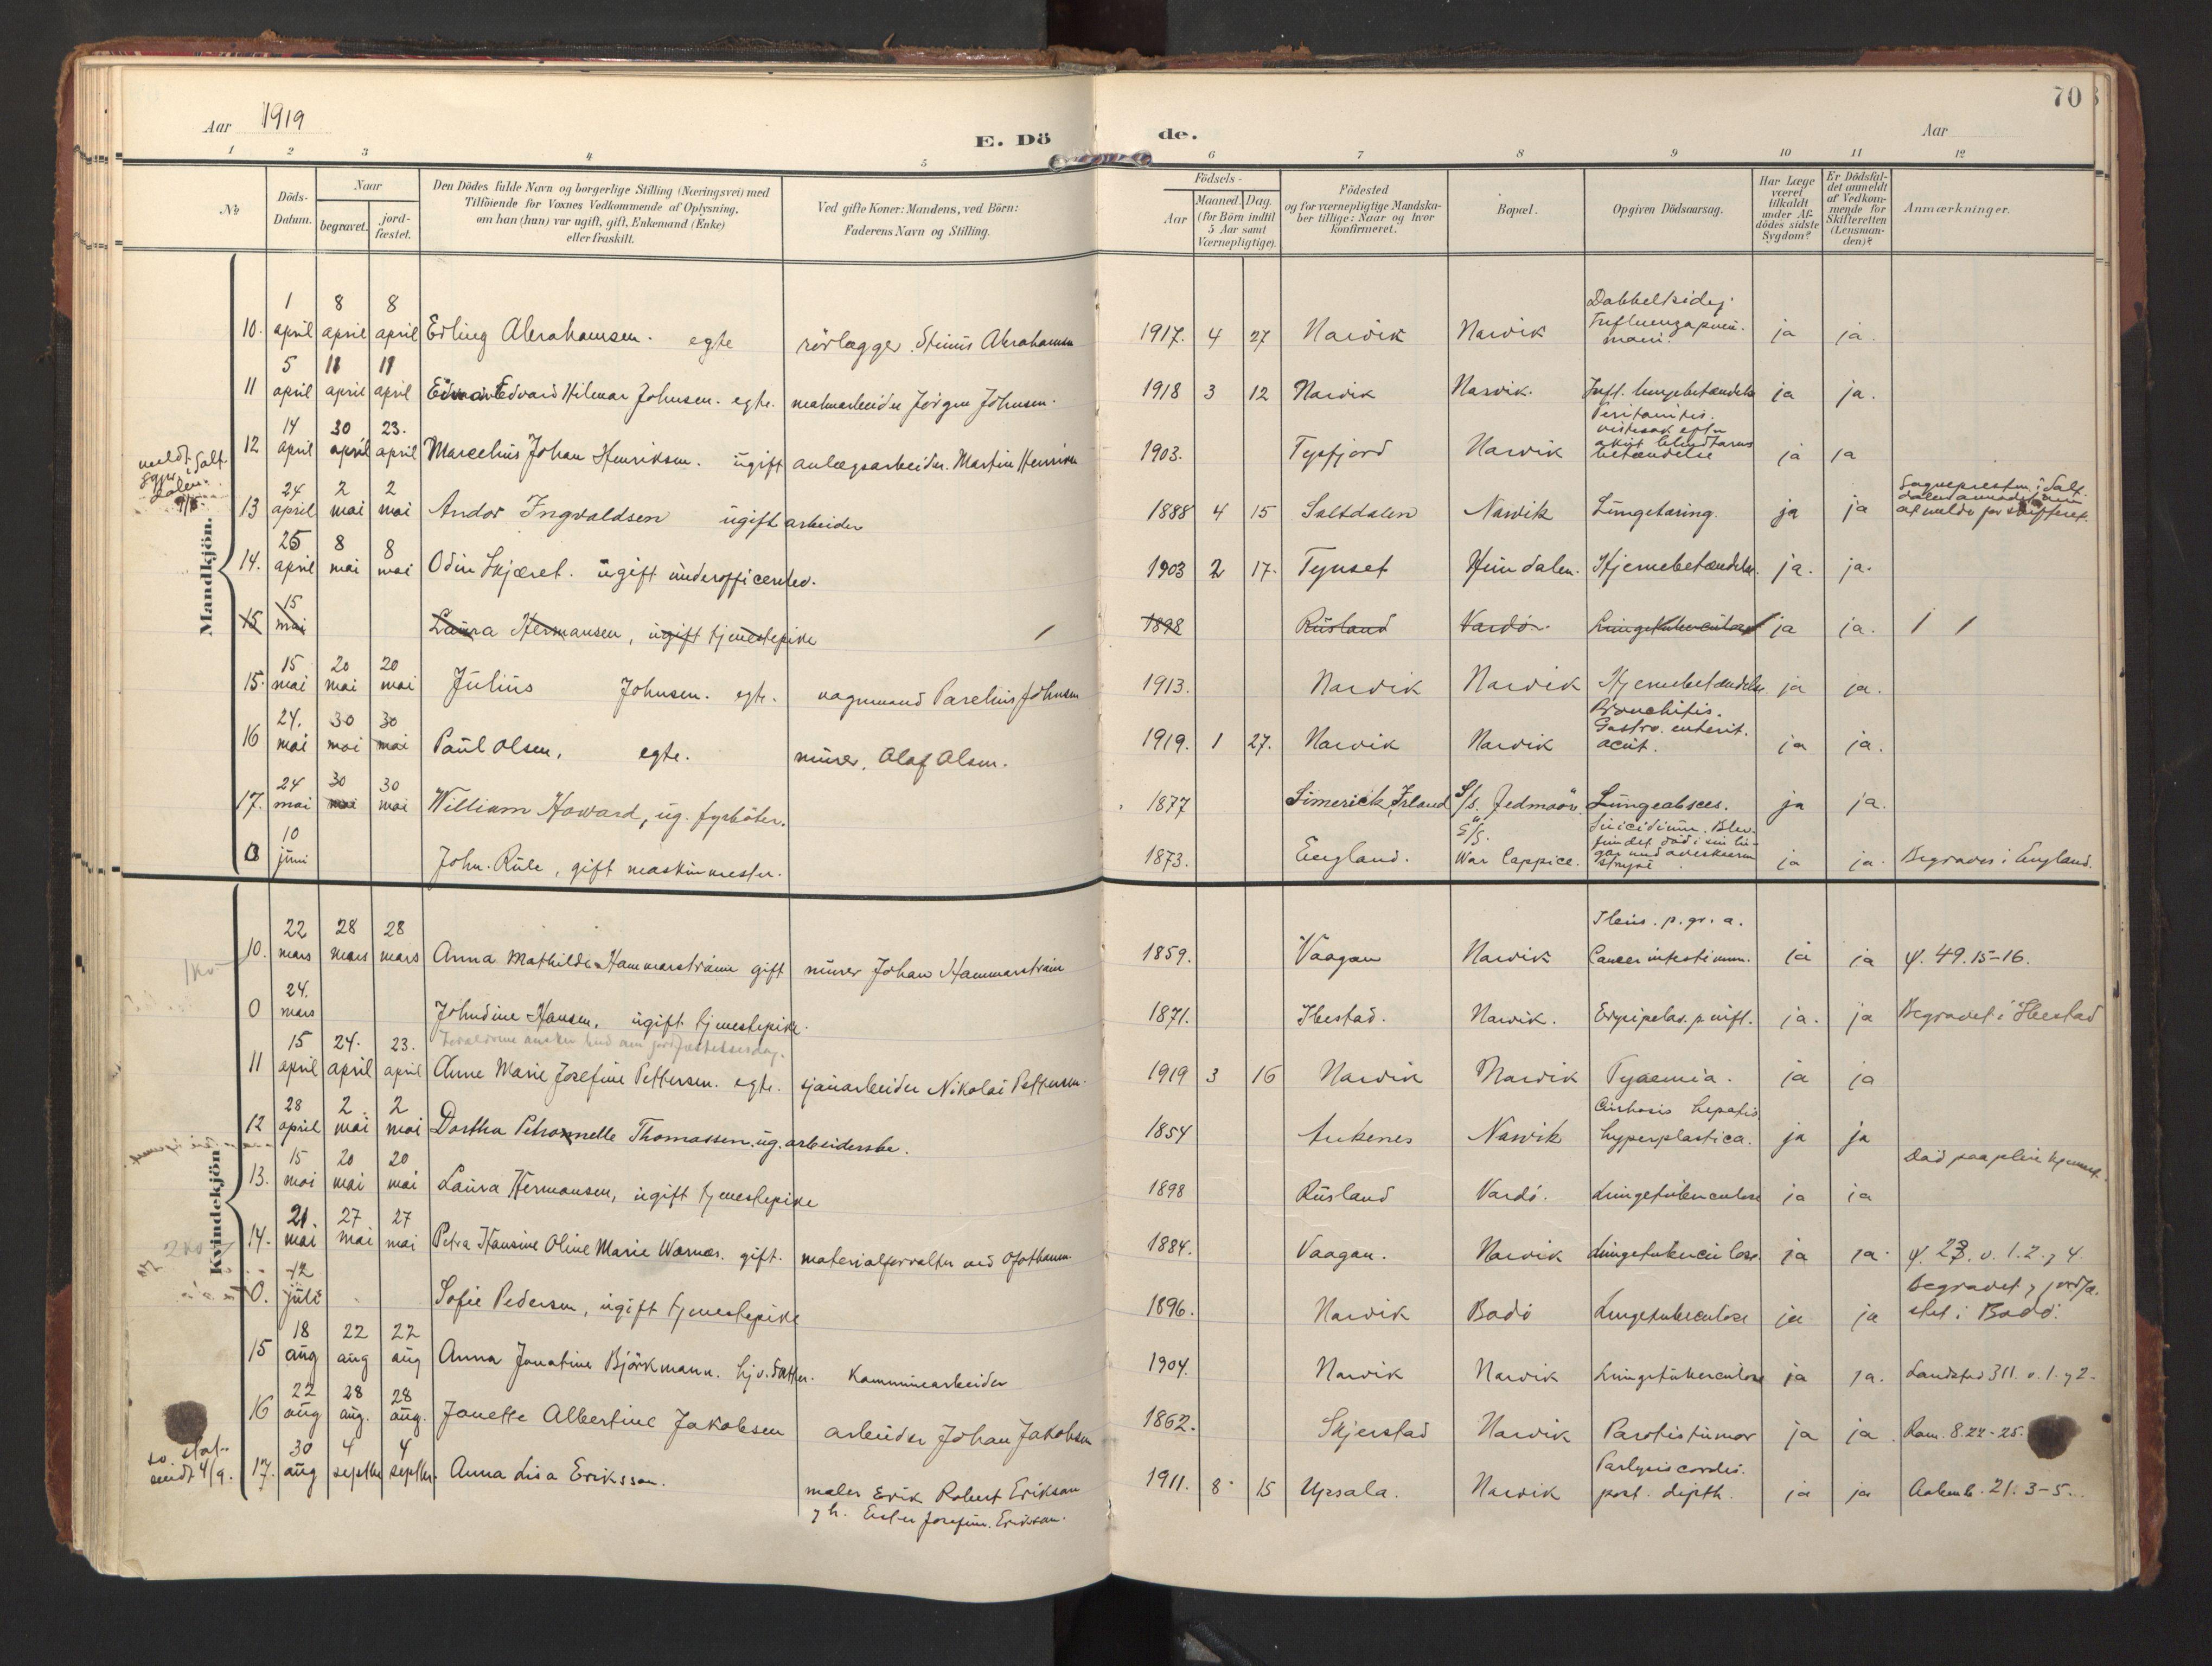 Aar 1919
E. Dö de.
Aar
70
1 2 3 4 5 6 7 8 9 10 11 12
No
Döds-Datum.
Naar
begravet.
jord-fæstet.
Den Dödes fulde Navn og borgerlige Stilling (Næringsvei) med
Tilföiende for Voxnes Vedkommende af Oplysning,
om han (hun) var ugift, gift, Enkemand (Enke)
eller fraskilt.
Ved gifte Koner: Mandens, ved Börn:
Faderens Navn og Stilling.
Födsels-
Aar
Maaned. Dag.
(for Börn indtil
5 Aar samt
Værnepligtige).
Födested
og for værnepligtige Mandska-
ber tillige: Naar og hvor
konfirmeret.
Bopæl.
Opgiven Dödsaarsag.
Har Læge
været
tilkaldt
under Af-
dödes sidste
Sygdom?
Er Dödsfal-
det anmeldt
af Vedkom-
mende for
Skifteretten
(Lensman-
den)?
Anmærkninger.
Mandkjön.
10. 1 april 8 april 8 april Erling Abrahamsen. egte rörlægger. Abrahamsen 1917. 4 27 Narvik Narvik Dobbeltsidig Influenzapneumoni. ja ja.
11 5 april 11 april 11 april Edvard Hilmar Johnsen. egte. malmarbeider Jörgen Johnsen. 1918 3 12 Narvik Narvik. Infl. lungebetændelse ja ja.
12 14 april 30 april 23. april Marcelius Johan Henriksen. ugift anlægsarbeider. Martin Henriksen 1903. Tysfjord Narvik Peritonitis. akut blindtarmsbetændelse ja ja
13 24 april 2 mai 2 mai Andor Ingvaldsen ugift arbeider 1888 4 15 Saltdalen Narvik Lungetæring. ja ja
14. 25 april 8 mai 8 mai Odin Skjæret. ugift underofficerselev. 1903 2 17. Tynset Hundalen. Hjernebetændelse. ja. ja.
15 15 mai Laura Hermansen, ugift tjenestepike 1898 Rusland Vardö. Lungetuberculose ja ja.
15. 15 mai 20 mai 20 mai Julius Johnsen. egte. vognmand Parelius Johnsen 1913. Narvik Narvik Hjernebetændelse. ja ja.
16 24. mai 30 mai 30 mai Paul Olsen, egte. murer, Olaf Olsen. 1919. 1 27. Narvik Narvik Bronchitis. Gastro. enterit. acut. ja ja.
17. 24 mai 30 mai 30 mai William Howard, ug. fyrböter. 1877 Limerick, Irland S/s. Jedmoor. Lungeabsces. ja ja.
0 10 juni John. Rule, gift maskinmester. 1873. England. S/S. War Cappice. Suicidium. Blev fundet död i sin ja ja. Begraves i England.
Kvindekjön
10. 22 mars 28 mars 28 mars Anna Mathilde Hammarström gift murer Johan Hammarström 1859. Vaagan Narvik Ileus. p. gr. a. Cancer intestinum. ja ja ψ. 49. 15-16.
0 24. mars Johndine Hansen, ugift tjenestepike. 1871. Ibestad. Narvik. Erysipelas. ja. ja Begravet i Ibestad
11 15 april 24. april 23. april Anne Marie Josefine Pettersen. egte. sjauarbeider Nikolai Pettersen. 1919 3 16 Narvik Narvik Pyaemia. ja ja
12 28 april 2 mai 2 mai Dorthea Petronnelle Thomassen. ug. arbeiderske. 1854 Ankenes Narvik Cirrhosis hepatis hyperplastica. ja ja
13. 15 mai 20 mai 20 mai Laura Hermansen, ugift tjenestepike 1898 Rusland Vardö. Lungetuberculose ja ja Död paa pleiehjemmet.
14. 21. mai 27 mai 27 mai Petra Hansine Oline Marie Wærnes. gift. materialforvalter ved Ofotbanen. 1884. Vaagan. Narvik Lungetuberculose. ja ja. ψ. 23. v. 1. 2. 4.
0. 12 juli Sofie Pedersen, ugift tjenestepike 1896. Narvik Bodö Lungetuberculose ja ja Begravet jordfæstet i Bodö.
15 18 aug 22 aug 22 aug Anna Jonatine Björkmann. hjv. datter. Kommunearbeider 1904. Narvik Narvik Lungetuberculose ja ja. Landstad 311. v. 1. 2.
16 22 aug 28 aug. 28 aug. Janette Albertine Jakobsen arbeider Johan Jakobsen 1862. Skjerstad Narvik Parotistumor ja ja Rom. 8. 22-25.
17. 30 aug 4 septbr 4 septbr. Anna Lisa Eriksson. maler Erik Robert Eriksson h. Ester Josefine. Eriksson. 1911. 8 15 Upsala. Narvik Paralysis cordis. post. dipth. ja ja Aabenb. 21. 3-5.